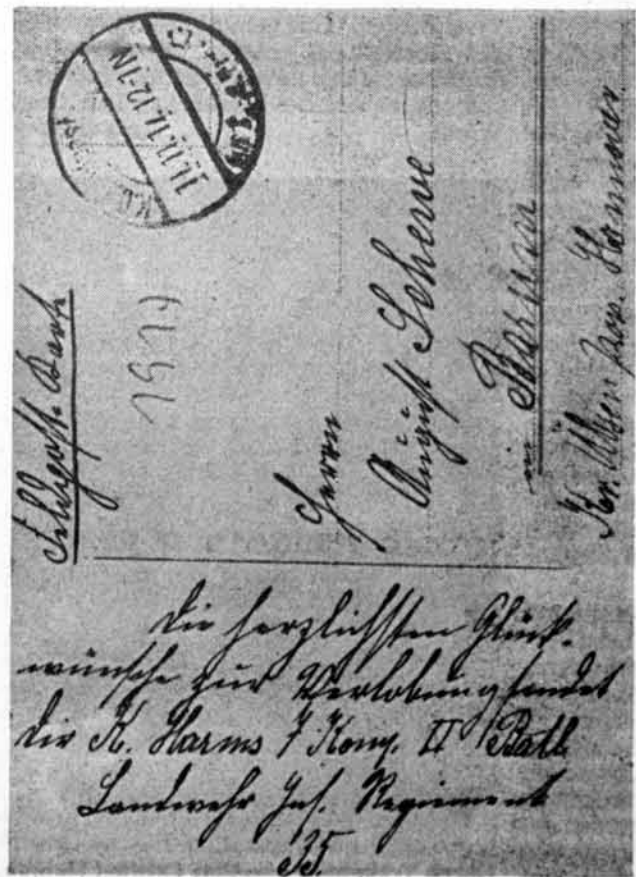 Feldpost-Karte
1914
11.11.14.12-1N
Herrn
August Schewe
in Barum
Kr. Ülzen Prov. Hannover
Die herzlichsten Glück-
wünsche zur Verlobung sendet
dir K. Harms 7 Komp. II Batl
Landwehr Inf. Regiement
35.